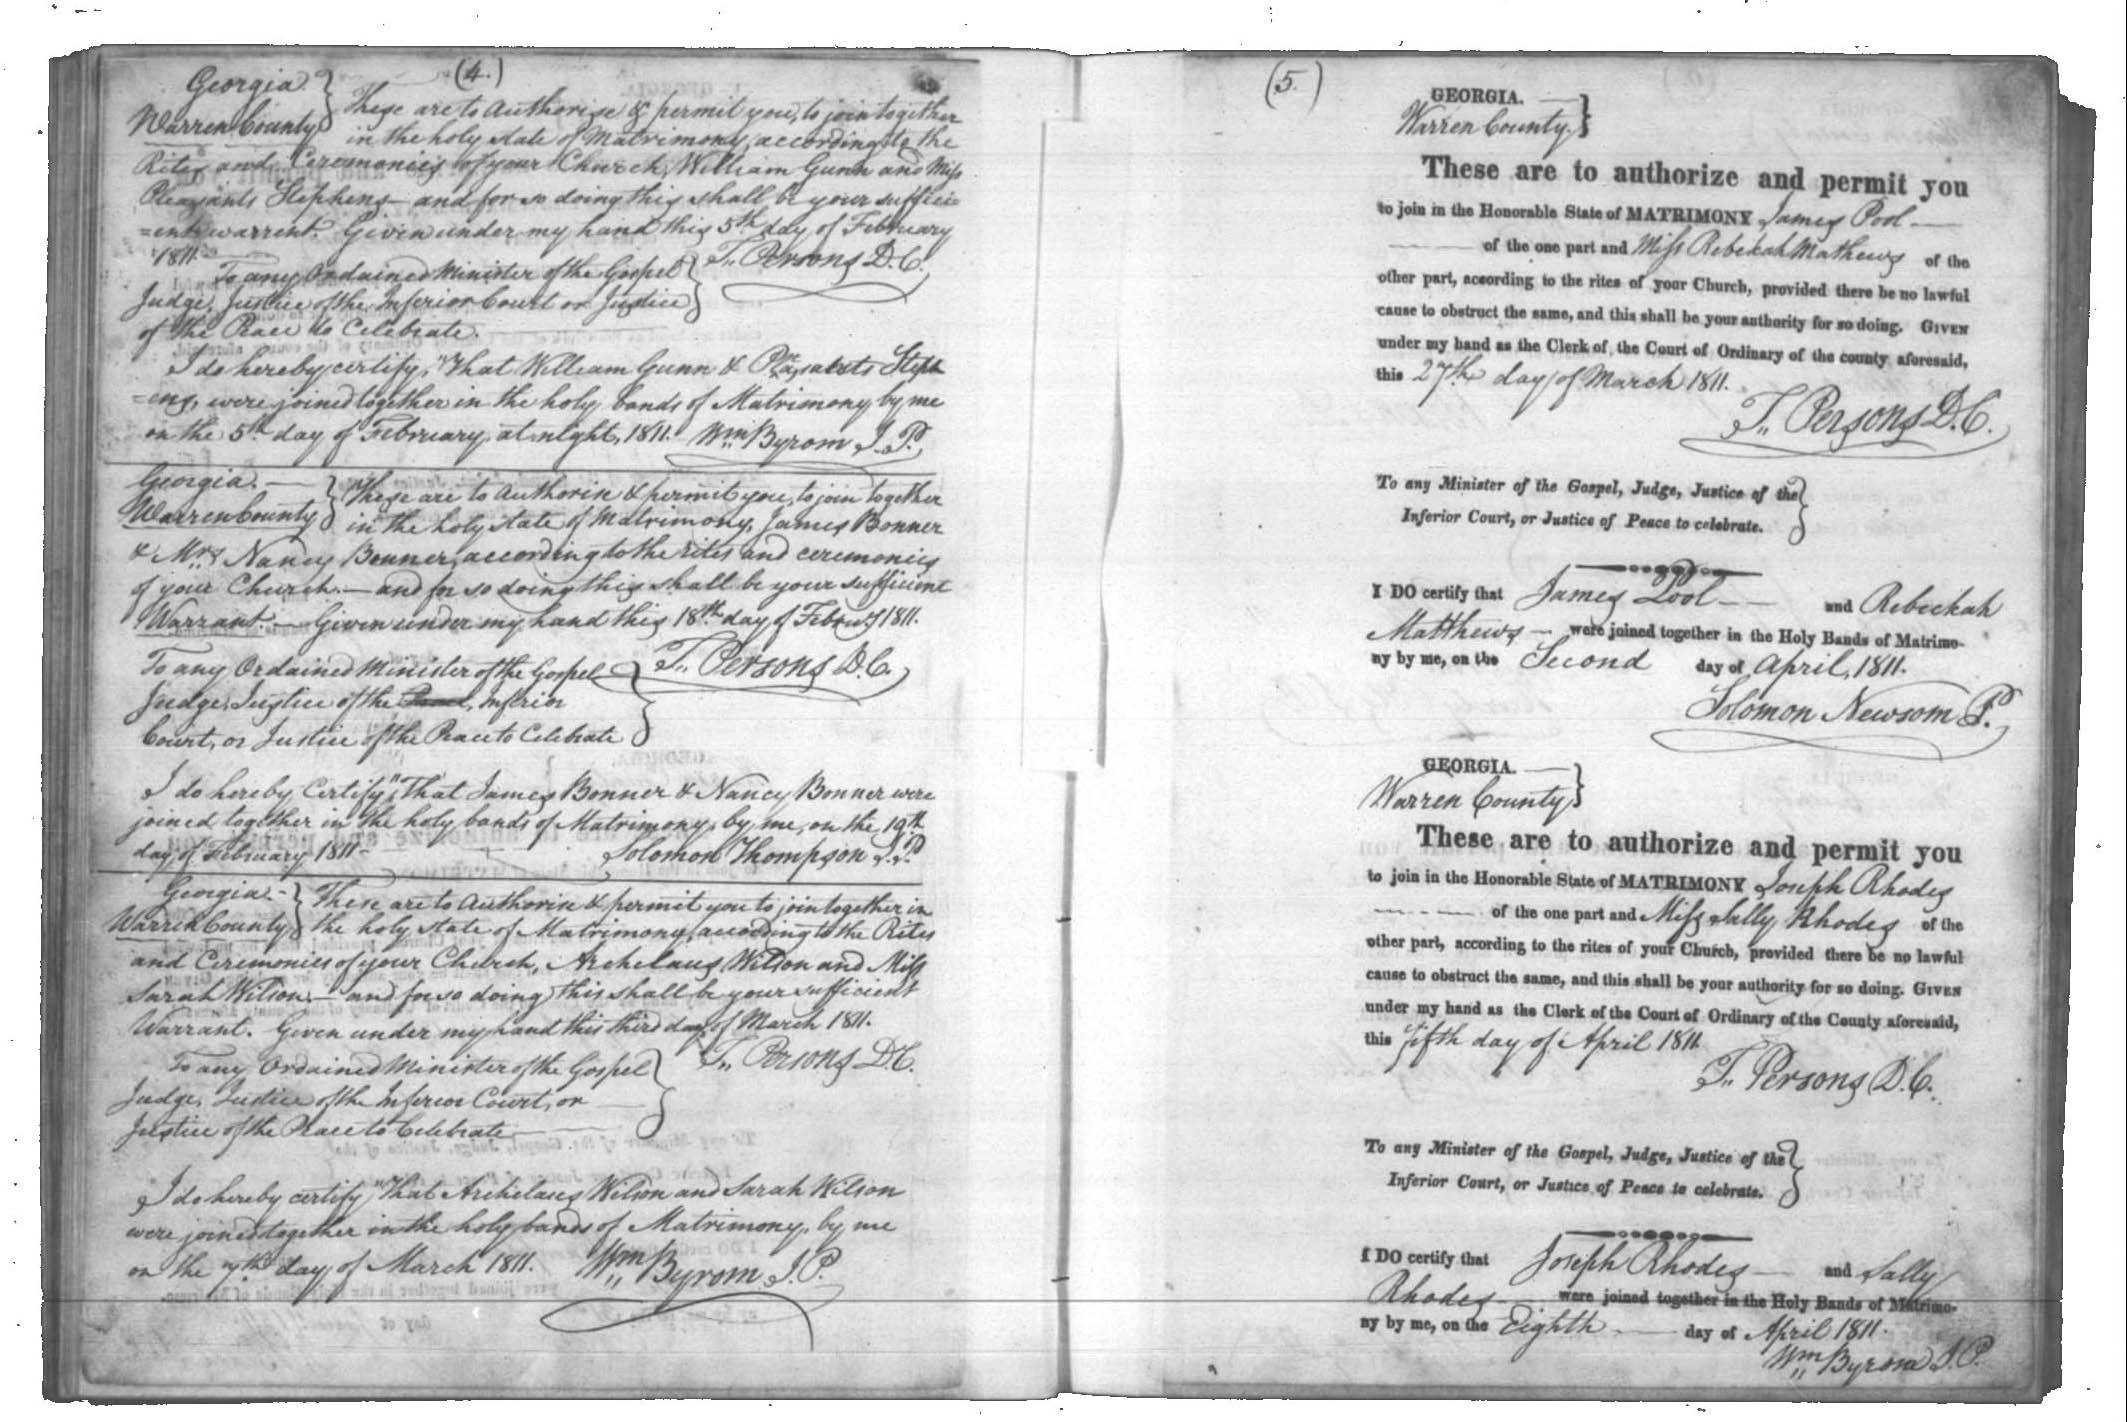 (4.)
Georgia.
Warren County
These are to Authorise & permit you, to join together
in the holy state of Matrimony, according to the
Rites and Ceremonies of your Church, William Gunn and Miss
Pleasants Stephens — and for so doing this shall be your suffici=
=ent warrent. Given under my hand this 5th day of February
1811.
T. Persons D.C.
To any Ordained Minister of the Gospel
Judge, Justice of the Inferior Court or Justice
of the Peace to Celebrate.
I do hereby certify, "That William Gunn & Steph
=ens, were joined together in the holy bands of Matrimony by me
on the 5th day of February, at night, 1811. Wm Byrom J.P.
Georgia. —
Warren County
These are to Authorise & permit you, to join together
in the holy state of Matrimony, James Bonner
& Mrs Nancy Bonner, according to the rites and ceremonies
of your Church. — and for so doing this shall be your sufficient
Warrant. — Given under my hand this 18th day of Feb 1811.
T. Persons D.C.
To any Ordained Minister of the Gospel
Judge, Justice of the Inferior
Court, or Justice of the Peace to Celebrate
I do hereby Certify, "That James Bonner & Nancy Bonner were
joined together in the holy bands of Matrimony, by me, on the 19th
day of February 1811 — Solomon Thompson J.P.
Georgia. -
Warren County
These are to Authorise & permit you to join together in
the holy state of Matrimony, according to the Rites
and Ceremonies of your Church, Archelaus Wilson and Miss
Sarah Wilson. — and for so doing this shall be your sufficient
Warrant. Given under my hand this third day of March 1811.
T. Persons D.C.
To any Ordained Minister of the Gospel
Judge, Justice of the Inferior Court, or —
Justice of the Peace to Celebrate
I do hereby certify, "That Archelaus Wilson and Sarah Wilson
were joined together in the holy bands of Matrimony, by me
on the 7th day of March 1811. Wm Byrom J.P.
(5.)
GEORGIA. —
Warren County.
These are to authorize and permit you
to join in the Honorable State of MATRIMONY James Pool —
— of the one part and Miss Rebekah Mathews of the
other part, according to the rites of your Church, provided there be no lawful
cause to obstruct the same, and this shall be your authority for so doing. GIVEN
under my hand as the Clerk of the Court of Ordinary of the county aforesaid,
this 27th day of March 1811.
T. Persons D.C.
To any Minister of the Gospel, Judge, Justice of the
Inferior Court, or Justice of Peace to celebrate.
I DO certify that James Pool — and Rebeckah
Matthews — were joined together in the Holy Bands of Matrimo-
ny by me, on the Second day of April, 1811.
Solomon Newsom
GEORGIA. —
Warren County
These are to authorize and permit you
to join in the Honorable State of MATRIMONY Joseph Rhodes
— of the one part and Miss Sally Rhodes of the
other part, according to the rites of your Church, provided there be no lawful
cause to obstruct the same, and this shall be your authority for so doing. GIVEN
under my hand as the Clerk of the Court of Ordinary of the County aforesaid,
this fifth day of April 1811.
T. Persons D.C.
To any Minister of the Gospel, Judge, Justice of the
Inferior Court, or Justice of Peace to celebrate.
I DO certify that Joseph Rhodes — and Sally
Rhodes — were joined together in the Holy Bands of Matrimo-
ny by me, on the Eighth — day of April 1811.
Wm Byrom J.P.